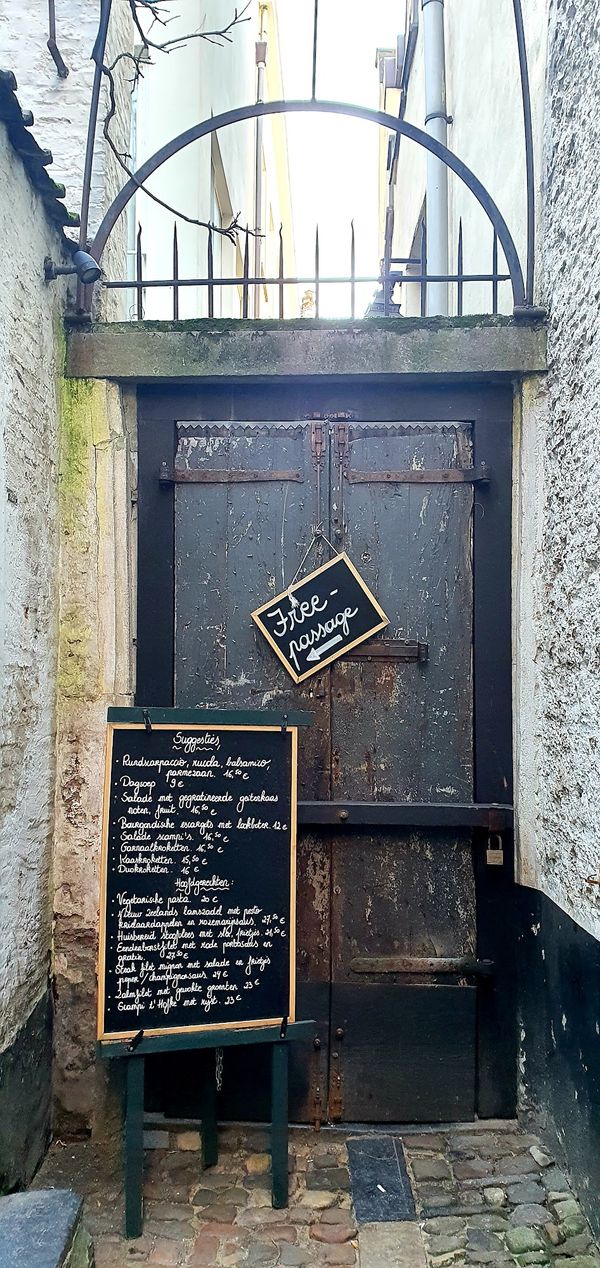 Free-
passage
Suggesties
· Rundscarpaccio, rucola, balsamico,
parmezaan. 16,50 €
· Dagsoep 9 €
· Salade met gegratineerde geitenkaas
noten, fruit. 16,50 €
· Bourgondische escargots met lookboter. 12 €
· Salade scampi's. 16,50 €
· Garnaalkroketten. 16,50 €
· Kaaskroketten. 15,50 €
· Duokroketten. 16 €
Hoofdgerechten:
· Vegetarische pasta. 20 €
· Nieuw Zeelands lamszadel met pesto
krielaardappelen en rozemarijnsaus. 27,50 €
· Huisbereid stoofvlees met sla, frietjes.
· Eendenborstfilet met rode portosaus en
gratin. 27,50 €
· Steak filet mignon met salade en frietjes
peper / champignonsaus. 29 €
· Zalmfilet met gewokte groenten 23 €
· Scampi 't Hofke met rijst. 23 €